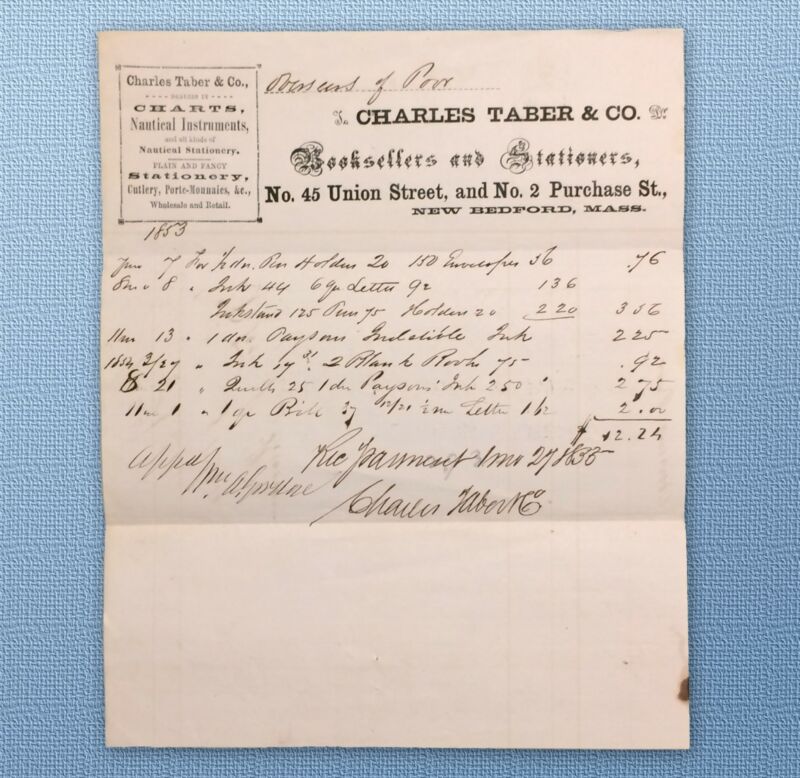 Charles Taber & Co.,
DEALERS IN
CHARTS,
Nautical Instruments,
and all kinds of
Nautical Stationery.
PLAIN AND FANCY
Stationery,
Cutlery, Porte-Monnaies, &c.,
Wholesale and Retail.
Overseers of Poor
To CHARLES TABER & CO. Dr.
Booksellers and Stationers,
No. 45 Union Street, and No. 2 Purchase St.,
NEW BEDFORD, MASS.
1853
7 For Pen Holders 20 150 Envelopes 56 .76
8 " Ink 44 6 Letter 92 136
Inkstand 125 Pens 75 Holders 20 220 3 56
11mo 13 " 1 dn Paysons Indelible Ink 2 25
1854 2/27 " Ink 17 2 Blank Books 75 .92
8 21 " Quills 25 1 dn Paysons Ink 2 50 " 2 75
11mo 1 " 1 Bill 37 12/21 Letter 1 62 2.00
$ 12.24
Rec Payment 1mo 27 1855
Charles Taber & Co
Wm